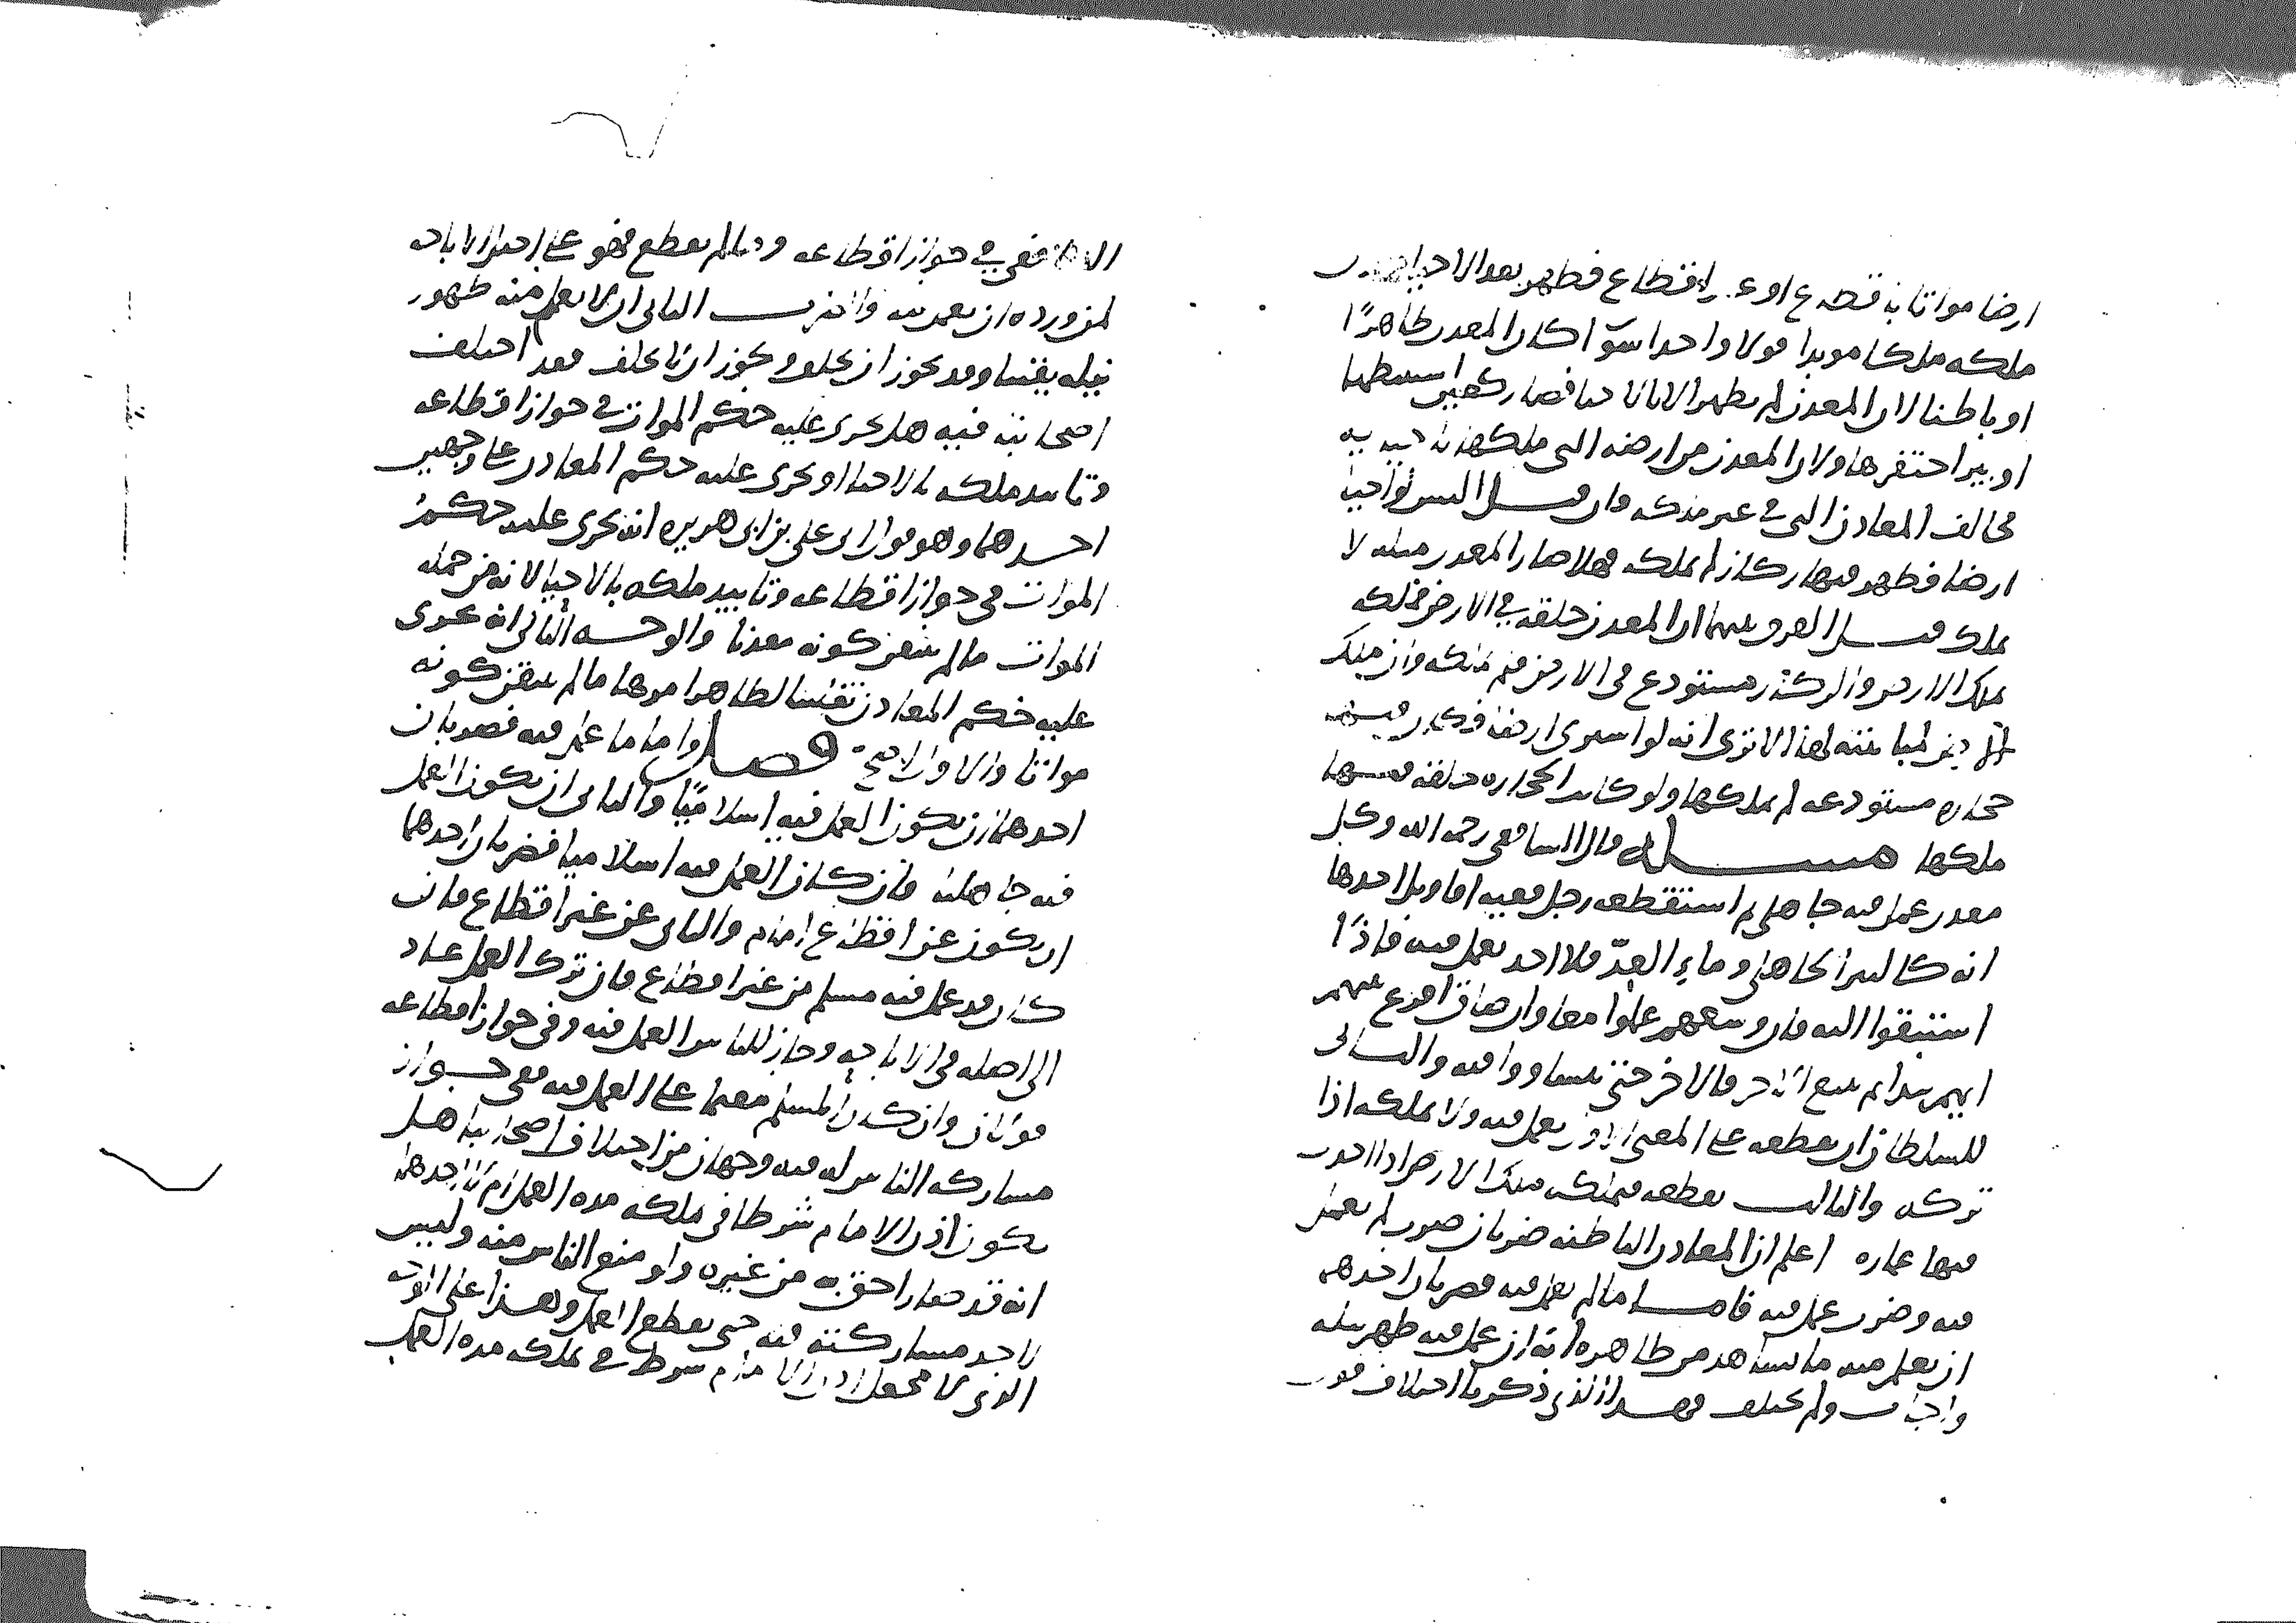 ارضا مواتا باقطاع او غير اقطاع فظهر بعد الاحيا
ملكه ملكا موبدا قولا واحدا سوآ كان المعدن ظاهرًا
او باطنا لان المعدن لم يظهر الا بالاحيا فصار كعين استنبطها
او بير احتفرها ولان المعدن من ارضه التي ملكها باحيايه
فخالف المعادن التي في غير ملكه فان قيل اليس لو احيا
ارضا فظهر فيها ركاز لم يملكه فهلا صار المعدن مثله لا
يملك قيل الفرق بينهما ان المعدن خلقة في الارض فملكه
بملك الارض والركاز مستودع في الارض فلم يملكه وان ملك
الارض لمباينته لها الا ترى انه لو اشترى ارضا فكان فيها
حجاره مستودعه لم يملكها ولو كانت الحجاره خلقه فيها
ملكها مسله قال الشافعي رحمه الله وكل
معدن عمل فيه جاهلي ثم استقطعه رجل ففيه اقاويل احدها
انه كالبير الجاهلي وماء العدّ فلا احد يعمل فيه فاذا
استبقوا اليه فان وسعهم عملوا معا وان ضاق اقرع بينهم
ايهم يبدا ثم يتبع الاخر فالاخر حتى يتساووا فيه والثاني
للسلطان ان يقطعه على المعنى الاول يعمل فيه ولا يملكه اذا
تركه والثالث يقطعه فيملكه ملك الارض اذا احدث
فيها عماره اعلم ان المعادن الباطنه ضربان ضرب لم يعمل
فيه وضرب عمل فيه فاما ما لم يعمل فيه فضربان احدهما
ان يعلم فيه ما يشاهد من ظاهره انه ان عمل فيه ظهر نيله
واجاب ولم يخلف فهذا الذي ذكرنا اختلاف قول
الشافعي في جواز اقطاعه وما لم يقطع فهو على اصل الاباحه
لمن ورده ان يعمل فيه والضرب الثاني ان لا يعلم منه ظهور
نيله يقينا وقد يجوز ان يخلف ويجوز ان لا يخلف فقد اختلف
اصحابنا فيه هل يجرى عليه حكم الموات في جواز اقطاعه
وتابيد ملكه بالاحيا او يجرى عليه حكم المعادن على وجهين
احدهما وهو قول ابي علي بن ابي هريره انه يجرى عليه حكم
الموات في جواز اقطاعه وتابيد ملكه بالاحيا لانه من جمله
الموات ما لم يتيقن كونه معدنا والوجه الثاني انه يجرى
عليه حكم المعادن تغليبا لظاهر امرها ما لم يتيقن كونه
مواتا والاول اصح فصل واما ما عمل فيه فضربان
احدهما ان يكون العمل فيه اسلاميًا والثاني ان يكون العمل
فيه جاهليا فان كان العمل فيه اسلاميا فضربان احدهما
ان يكون عن اقطاع امام والثاني عن غير اقطاع فان
كان قد عمل فيه مسلم من غير اقطاع فان ترك العمل عاد
الى اصله في الاباحه وجاز للناس العمل فيه وفي جواز اقطاعه
قولان وان كان المسلم مقيما على العمل فيه ففي جواز
مشاركه الناس له فيه وجهان من اختلاف اصحابنا هل
يكون اذن الامام شرطا في ملكه مده العمل ام لا احدهما
انه قد صار احق به من غيره ولو منع الناس منه وليس
لاحد مشاركته فيه حتى يقطع العمل وهذا على الوجه
الذي لا يجعل اذن الامام شرط في تملكه مده العمل